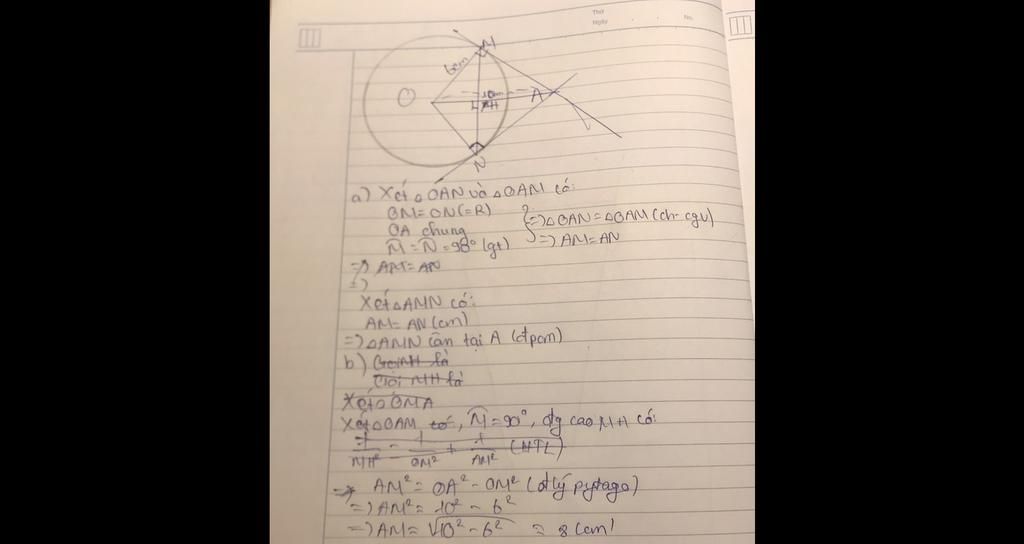 Thứ
Ngày
No.
M
6cm
O
10cm
A
H
N
a) Xét △OAN và △OAM có:
OM=ON(=R)
OA chung
M̂ = N̂ = 90° (gt)
=> △OAN = △OAM (ch-cgv)
=> AM=AN
=> AM=AN
=>
Xét △AMN có:
AM= AN (cm)
=> △AMN cân tại A (đpcm)
b) Gọi MH là
Gọi MH là
Xét △OMA
Xét △OAM có, M̂ = 90°, đg cao MH có:
1/MH² = 1/OM² + 1/AM² (HTL)
=> AM² = OA² - OM² (đlý pytago)
=> AM² = 10² - 6²
=> AM = √10² - 6² = 8 (cm)